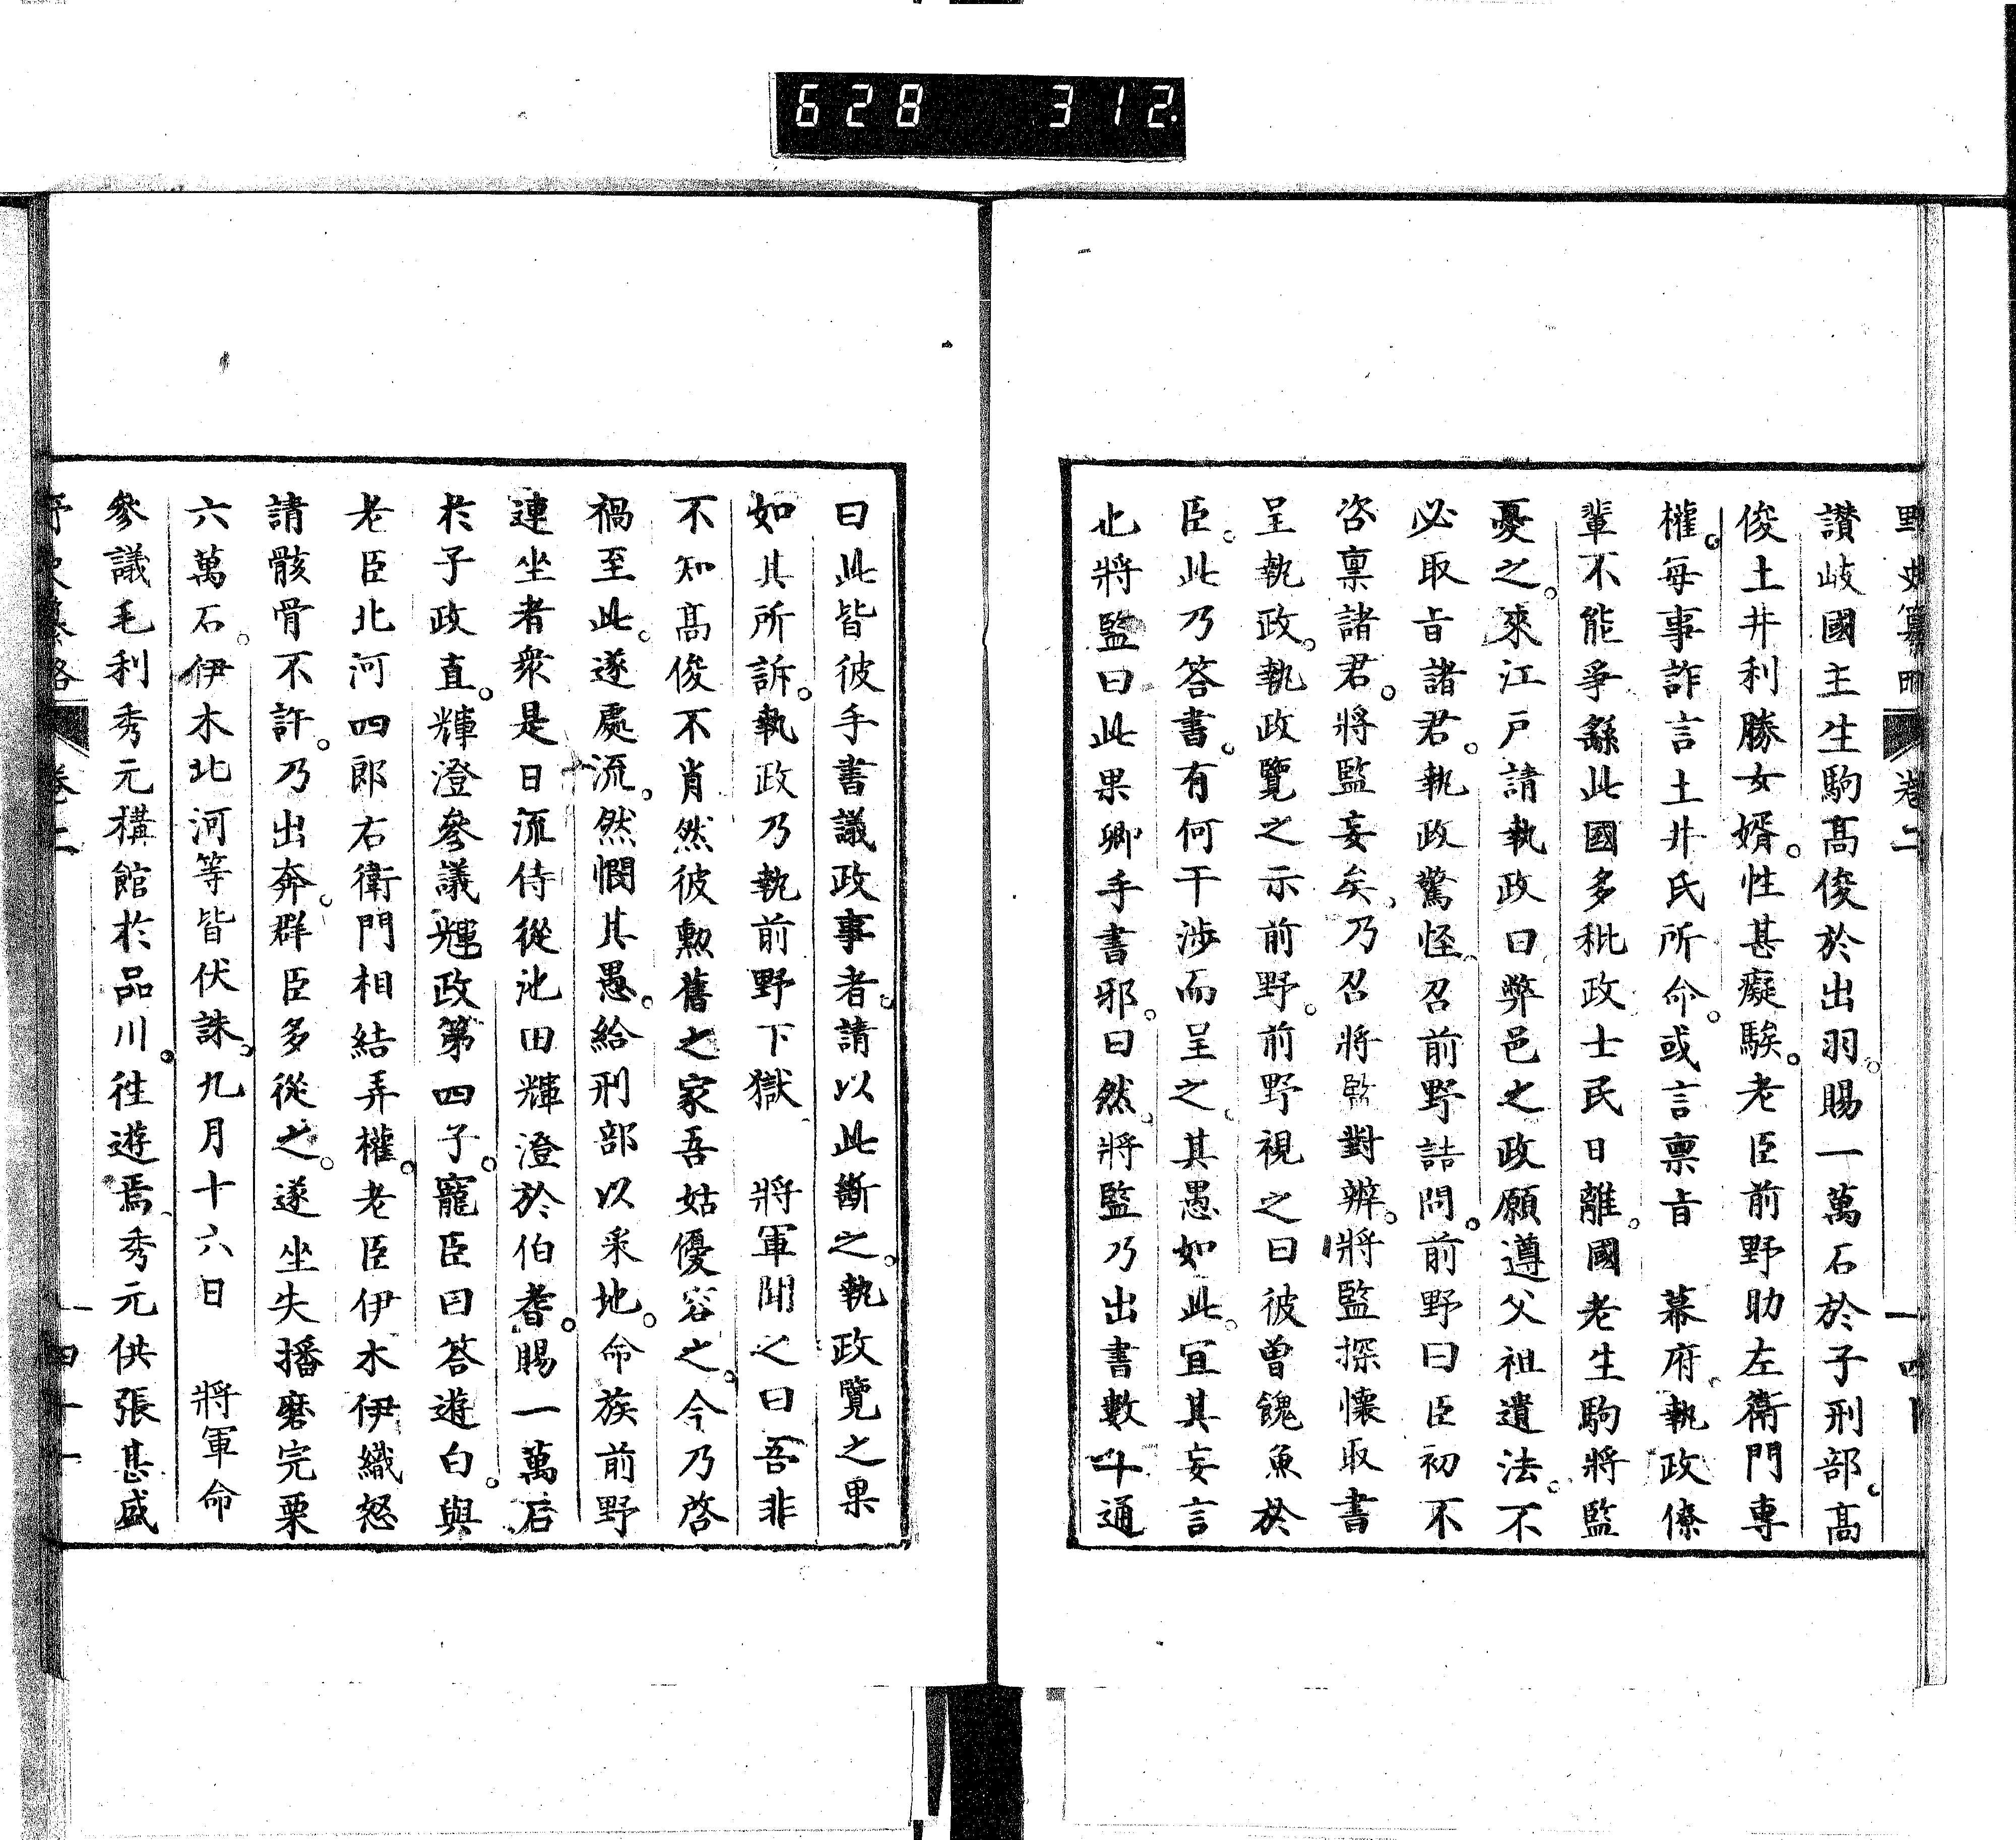 628 312.
卷二
讃岐國主生駒髙俊於出羽。賜一萬石於子刑部。髙
俊土井利勝女婿。性甚癡騃。老臣前野助左衛門專
權。每事詐言土井氏所命。或言禀旨 幕府。執政僚
輩不能爭繇此國多秕政士民日離。國老生駒將監
憂之。來江戸請執政曰弊邑之政願遵父祖遺法。不
必取旨諸君。執政驚怪。召前野詰問。前野曰臣初不
咨禀諸君。將監妄矣。乃召將監對辨。將監探懷取書
呈執政。執政覽之示前野。前野視之曰彼曽餽魚於
臣。此乃答書。有何干涉而呈之。其愚如此。宜其妄言
也將監曰此果卿手書邪。曰然。將監乃出書數十通
曰此皆彼手書議政事者。請以此斷之。執政覽之果
如其所訴。執政乃執前野下獄 將軍聞之曰吾非
不知髙俊不肖然彼勲舊之家吾姑優容之。今乃啓
禍至此。遂處流。然憫其愚。給刑部以釆地。命族前野
連坐者衆是日流侍從池田輝澄於伯耆。賜一萬石
於子政直。輝澄參議輝政第四子。寵臣曰答遊白。與
老臣北河四郎右衛門相結弄權。老臣伊木伊織怒
請骸骨不許。乃出奔。群臣多從之。遂坐失播磨完粟
六萬石。伊木北河等皆伏誅。九月十六日 將軍命
參議毛利秀元構館於品川。徃遊焉秀元供張甚盛
卷二